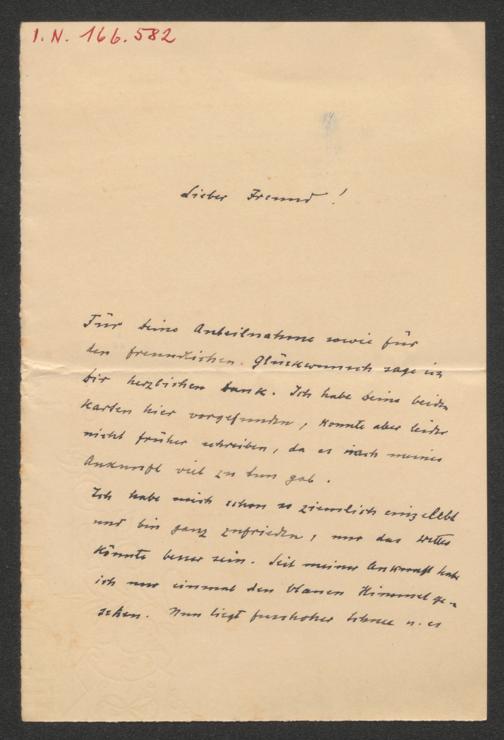 I.N. 166.582
Lieber Freund!
Für deine Anteilnahme sowie für
den freundlichen Glückwunsch sage ich
dir herzlichen Dank. Ich habe deine beiden
Karten hier vorgefunden, konnte aber leider
nicht früher schreiben, da es nach meiner
Ankunft viel zu tun gab.
Ich habe mich schon so ziemlich eingelebt
und bin ganz zufrieden, nur das Wetter
könnte besser sein. Seit meiner Ankunft habe
ich nur einmal den blauen Himmel ge-
sehen. Nun liegt fusshoher Schnee u. es